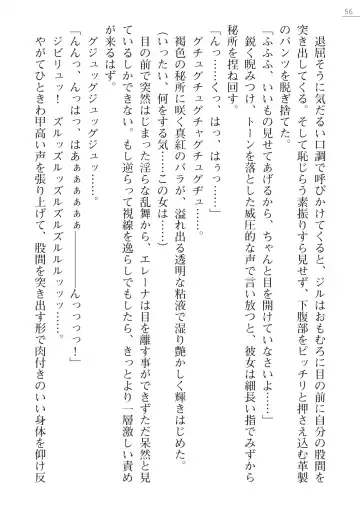 56
退屈そうに気だるい口調で呼びかけてくると、ジルはおもむろに目の前に自分の股間を
突き出してくる。そして恥じらう素振りすら見せず、下腹部をピッチリと押さえ込む革製
のパンツを脱ぎ捨てた。
「ふふふ、いいもの見せてあげるから、ちゃんと目を開けていなさいよ……」
鋭く睨みつけ、トーンを落とした威圧的な声で言い放つと、彼女は細長い指でみずから
秘所を捏ね回す。
「んっ……くっ、はっ、はぅっ……」
グチュグチュグチャグチュグヂュ……。
褐色の秘所に咲く真紅のバラが、溢れ出る透明な粘液で湿り艶かしく輝きはじめた。
（いったい、何をする気……この女は……）
目の前で突然はじまった淫らな乱舞から、エレーナは目を離す事ができずただ呆然と見
ているしかできない。もし逆らって視線を逸らしでもしたら、きっとより一層激しい責め
が来るはず。
グジュッグジュッグジュッ……。
「んんっ、んっはっ、はあぁぁぁぁぁ――んっっっっ！」
ジビリュッ！　ズルッズルズルズルルルッッッ……。
やがてひときわ甲高い声を張り上げて、股間を突き出す形で肉付きのいい身体を仰け反